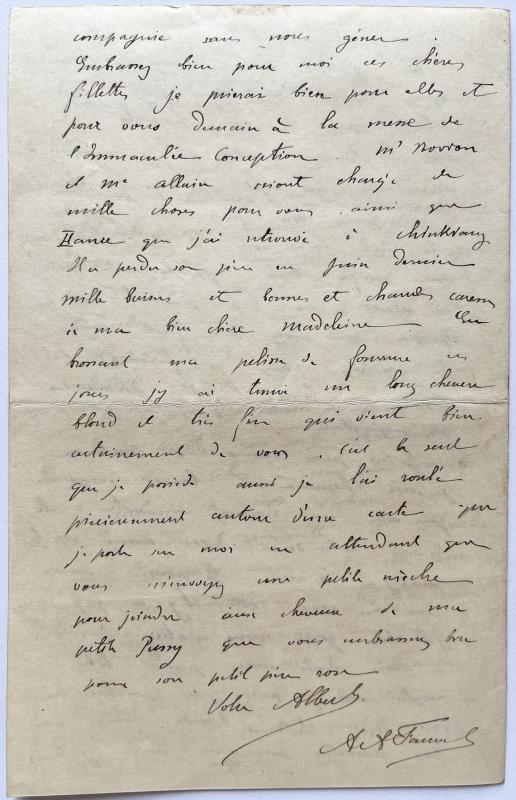 compagnie sans nous gêner.
Embrassez bien pour moi ces chères
fillettes je prierai bien pour elles et
pour vous demain à la messe de
l'Immaculée Conception. Mr
et Me m'ont chargé de
mille choses pour vous ainsi que
que j'ai retrouvé à
Il a perdu son père en juin dernier
mille baisers et bonnes et chaudes caresses
à ma bien chère Madeleine En
brossant ma pelisse de fourrure ces
jours j'y ai trouvé un long cheveu
blond et très fin qui vient bien
certainement de vous. C'est le seul
que je possède aussi je l'ai roulé
précieusement autour d'une carte que
je porte sur moi en attendant que
vous m'envoyez une petite mèche
pour joindre aux cheveux de ma
petite Pussy que vous embrasserez bien
pour son petit père rose
Votre Albert.